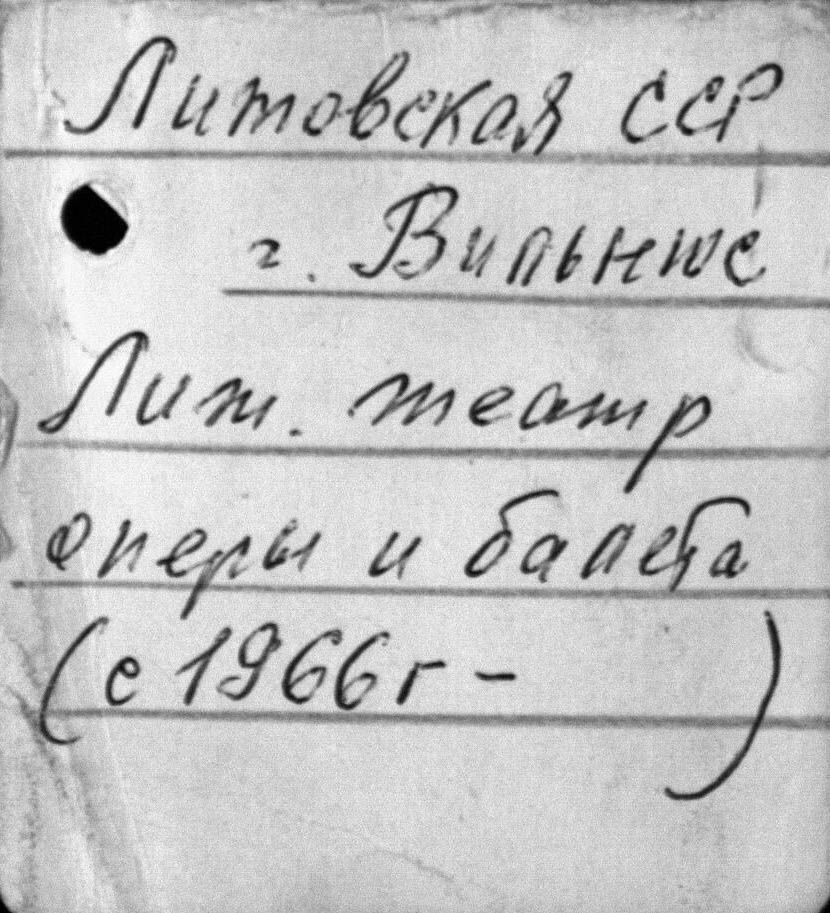 Литовская ССР
г. Вильнюс
Лит. театр
оперы и балета
(с 1966г - )